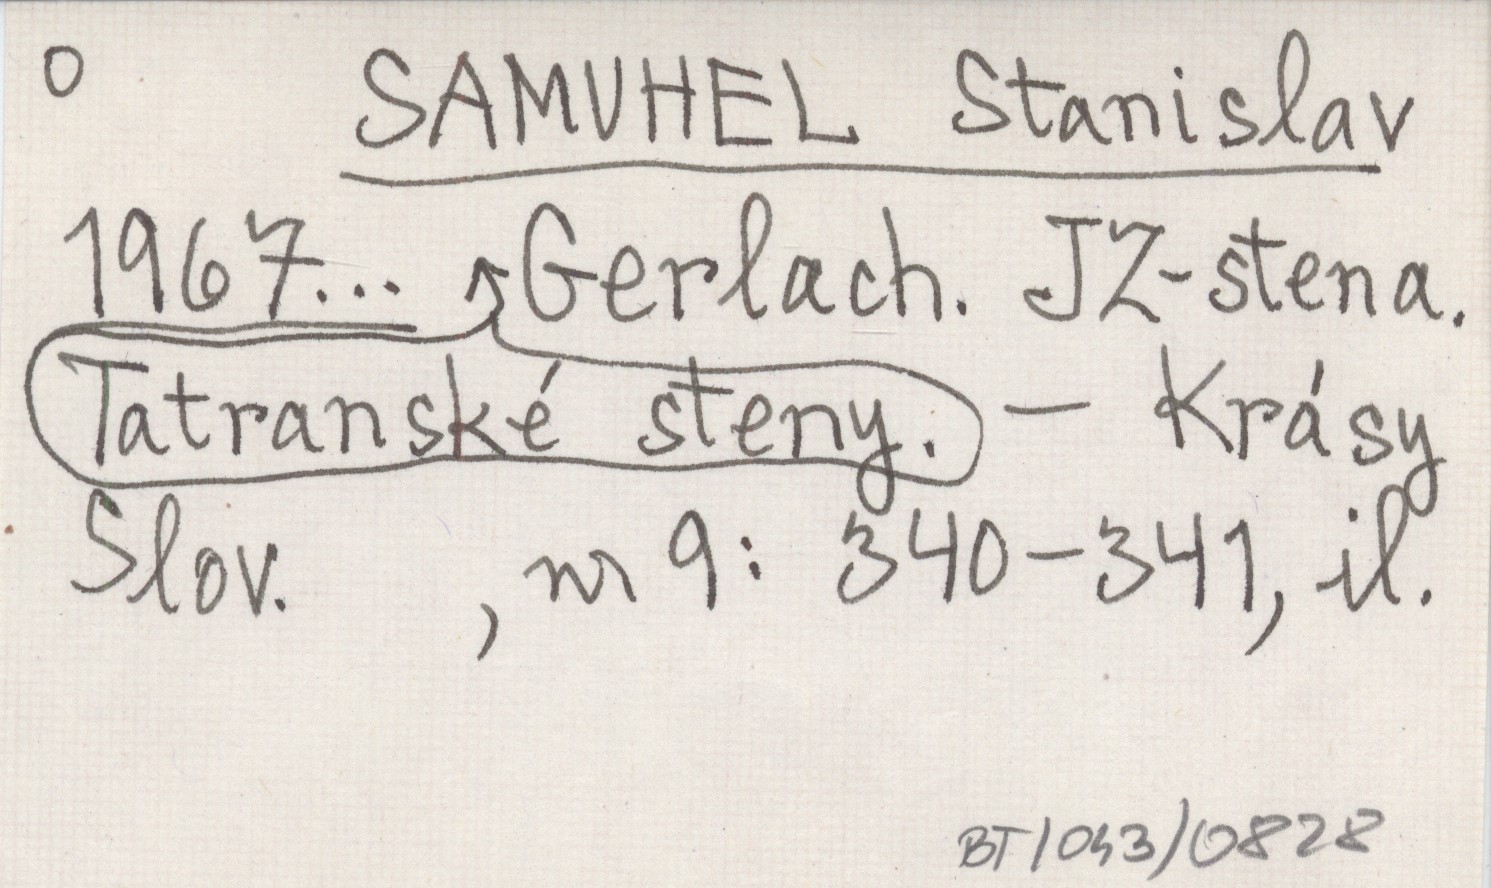 o SAMUHEL Stanislav
1967... Gerlach. JZ-stena.
Tatranské steny. — Krásy
Slov. , nr 9: 340-341, il.
BT/043/0828